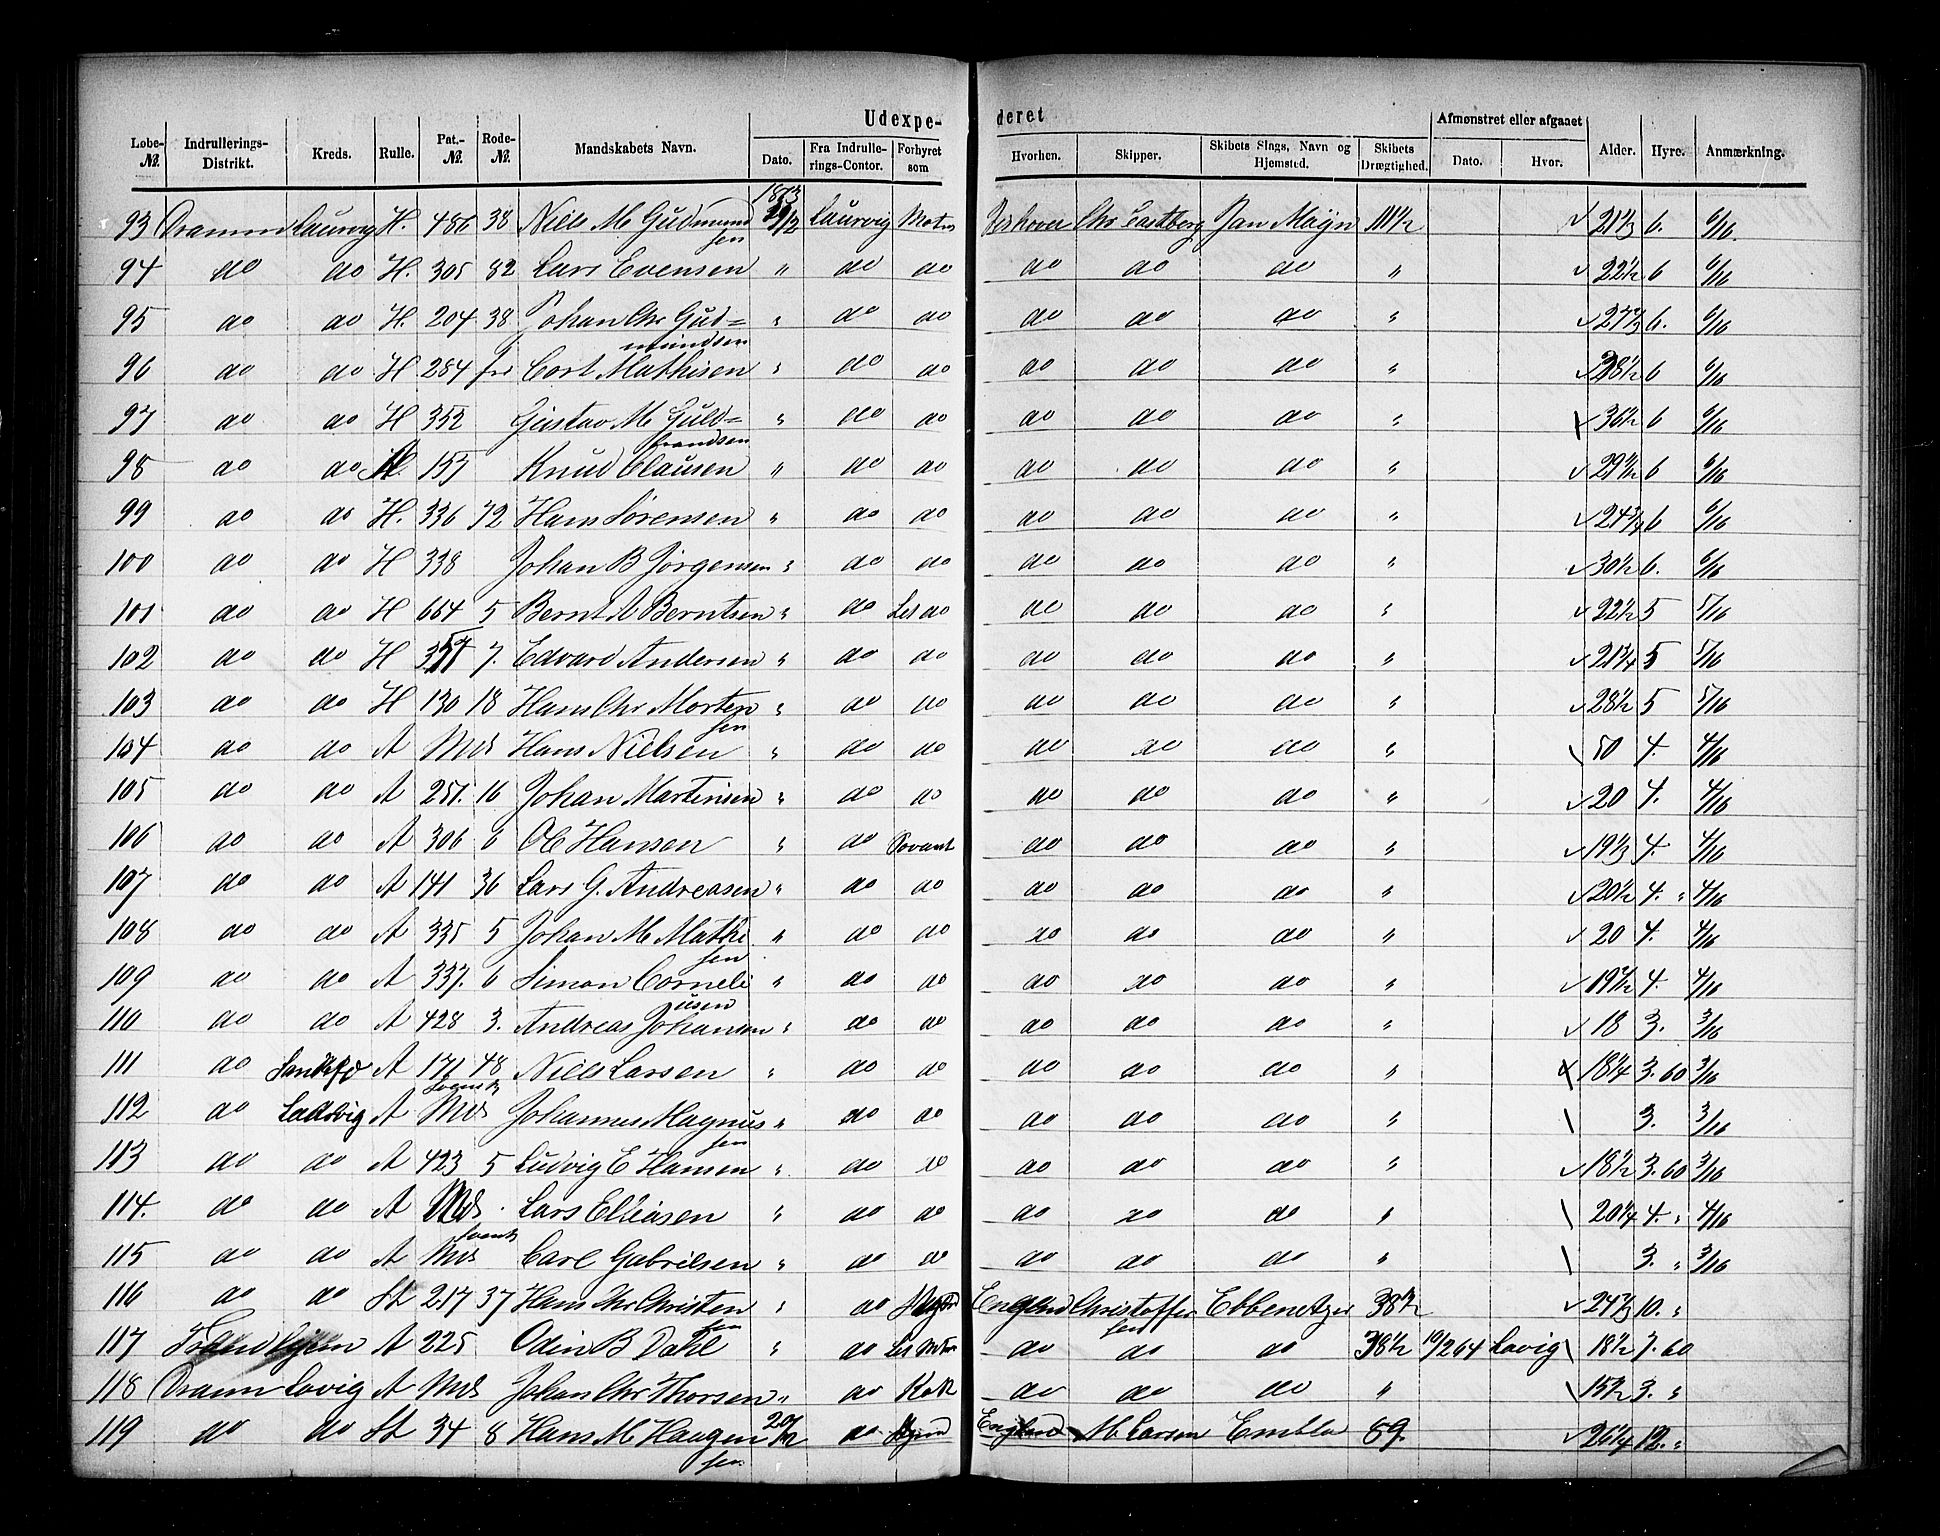 Udexpe- deret
Løbe-№. Indrullerings-Distrikt. Kreds. Rulle. Pat.-№. Rode-№. Mandskabets Navn. Dato. Fra Indrullerings-Contor. Forhyret som Hvorhen. Skipper. Skibets Slags, Navn og Hjemsted. Skibets Drægtighed. Afmønstret eller afgaaet Dato. Hvor. Alder. Hyre. Anmærkning.
1873
93 Dramm Laurvig H. 486 38 Niels M Gudmundsen Laurvig Matros Chr Castberg Jan Mayn 111½ 21⅓ 6. 6/16.
94 do do H. 305 82 Lars Evensen " do do do do do " 22½ 6 6/16
95 do do H. 204 38 Johan Chr Gud=mundsen " do do do do do " 27⅔ 6. 6/16
96 do do H 284 fri Cort Mathisen " do do do do do " 6 6/16
97 do do H 352 Gustav M Guld=brandsen " do do do do do " 36½ 6 6/16
98 do do H. 157 Knud Clausen " do do do do do " 6 6/16
99 do do H. 336 72 Hans Sørensen " do do do do do " 24¾ 6 6/16
100 do do H 338 Johan B Jørgensen " do do do do do " 30½ 6. 6/16
101 do do H 664 5 Bernt A Berntsen " do Let do do do do " 22½ 5 5/16
102 do do H 7. Edvard Andersen " do do do do do " 21¾ 5 5/16
103 do do H 130 18 Hans Chr Mortensen " do do do do do " 28½ 5 5/16
104 do do A Mds Hans Nielsen " do do do do do " 50 4. 4/16
105 do do A 251. 16 Johan Martinsen " do do do do do " 20 4. 4/16
106 do do A 306 6 Ole Hansen " do Jovant do do do " 19⅓ 4. 4/16
107 do do A 141 36 Lars G. Andreasen " do do do do do " 20½ 4. " 4/16
108 do do A 335 5 Johan M Mathisen " do do do do do " 20 4. 4/16
109 do do A 337. 6 Simon Corneliusen " do do do do do " 19½ 4. 4/16
110 do do A 428 3. Andreas Johansen " do do do do do " 18 3. 3/16
111 do Sandefd A 171 48 Niels Larsen " do do do do do " 18¼ 3. 60 3/16
112 do Laurvig A Svensk Mds Johannes Magnussen " do do do do do " 3. 3/16
113 do do A 423 5 Ludvig E Hansen " do do do do do " 18½ 3. 60 3/16
114. do do A Mds Lars Elliasen " do do do do do " 20¼ 4. " 4/16
115 do do A Svensk Mds Carl Gabrielsen " do do do do do " 3. " 3/16
116 do do St 217 37 Hans Chr Christensen " do England Christoffersen Ebbenetzer 38½ 24⅔ 10. "
117 Trondhjem A 225 Odin B Dahl " do Let Matr do do do 38½ 10/2 64 Lavig 18½ 7. 60
118 Dramm Lavig A Mds Johan Chr Thorsen " do Kok do do do " 15½ 3. "
119 do do St 34 8 Hans M Haagensen 20/12 do England M Larsen Embla 89. 26¼ 12. "